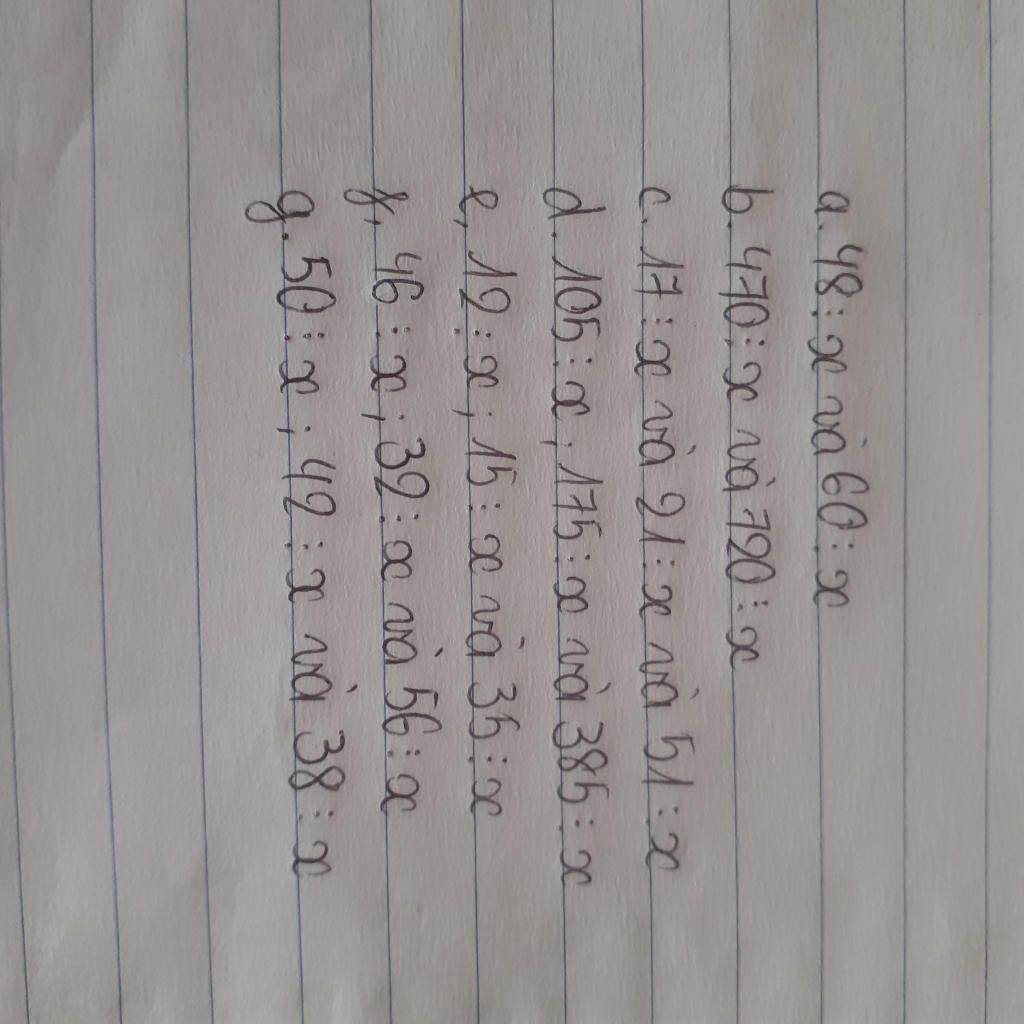 a. 48 ⋮ x và 60 ⋮ x
b. 470 ⋮ x và 720 ⋮ x
c. 17 ⋮ x và 21 ⋮ x và 51 ⋮ x
d. 105 ⋮ x; 175 ⋮ x và 385 ⋮ x
e, 12 ⋮ x; 15 ⋮ x và 35 ⋮ x
f, 46 ⋮ x; 32 ⋮ x và 56 ⋮ x
g. 50 ⋮ x; 42 ⋮ x và 38 ⋮ x